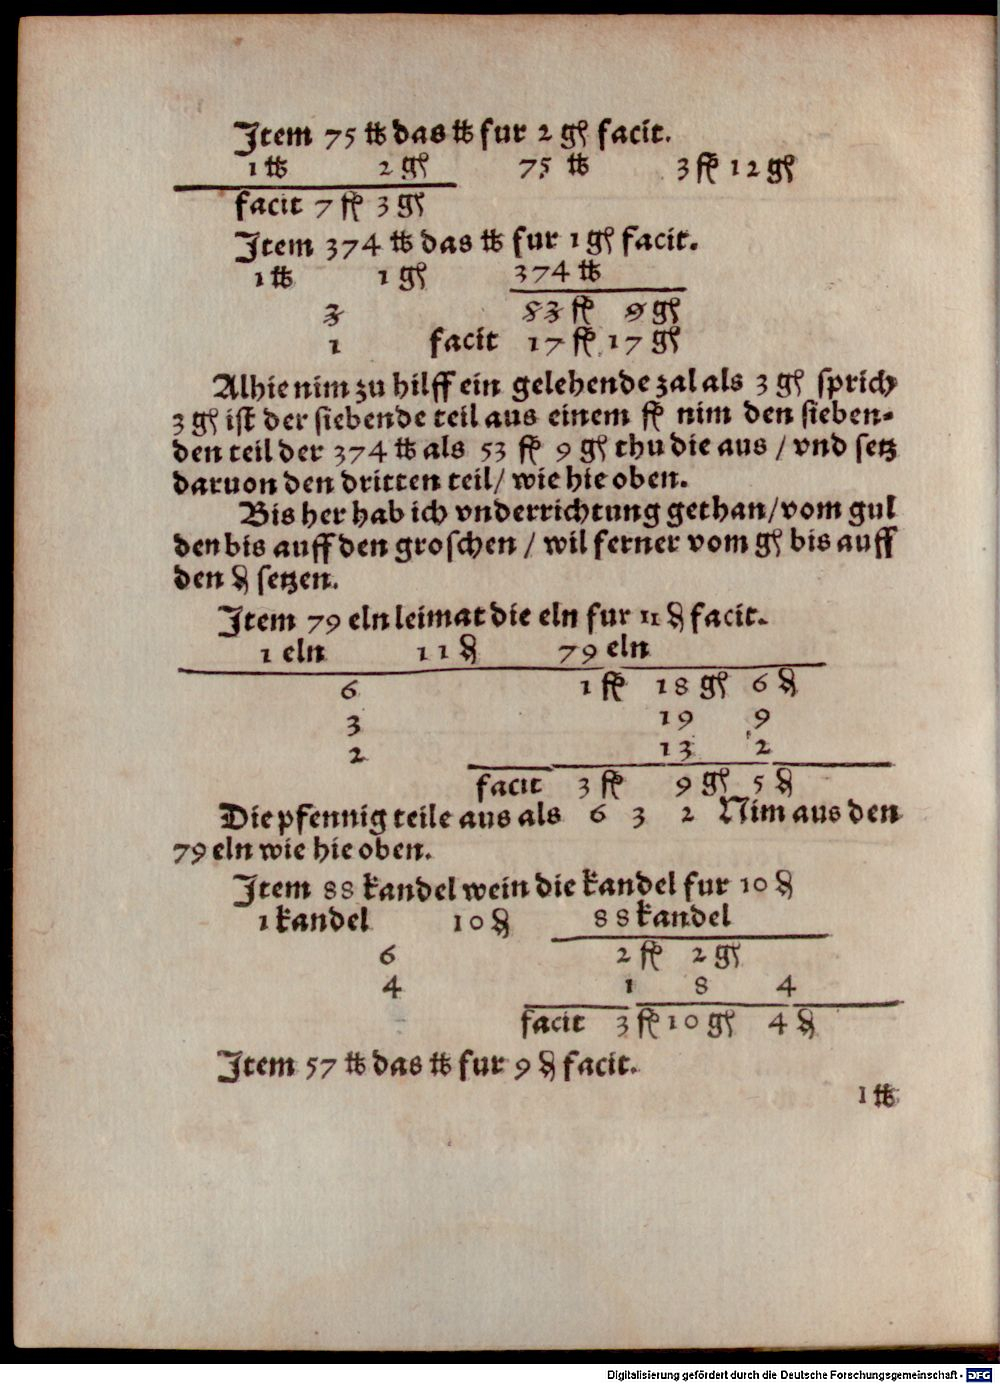 Item 75 ℔ das ℔ fur 2 gl facit.
1 ℔ 2 gl 75 ℔ 3 fl 12 gl
facit 7 fl 3 gl
Item 374 ℔ das ℔ fur 1 gl facit.
1 ℔ 1 gl 374 ℔
3 83 fl 9 gl
1 facit 17 fl 17 gl
Alhie nim zu hilff ein gelehende zal als 3 gl sprich
3 gl ist der siebende teil aus einem fl nim den sieben-
den teil der 374 ℔ als 53 fl 9 gl thu die aus / vnd setz
daruon den dritten teil/ wie hie oben.
Bis her hab ich vnderrichtung gethan/vom gul
den bis auff den groschen / wil ferner vom gl bis auff
den ₰ setzen.
Item 79 eln leimat die eln fur 11 ₰ facit.
1 eln 11 ₰ 79 eln
6 1 fl 18 gl 6 ₰
3 19 9
2 13 2
facit 3 fl 9 gl 5 ₰
Die pfennig teile aus als 6 3 2 Nim aus den
79 eln wie hie oben.
Item 88 kandel wein die kandel fur 10 ₰
1 kandel 10 ₰ 88 kandel
6 2 fl 2 gl
4 1 8 4
facit 3 fl 10 gl 4 ₰
Item 57 ℔ das ℔ fur 9 ₰ facit.
1 ℔
Digitalisierung gefördert durch die Deutsche Forschungsgemeinschaft - DFG